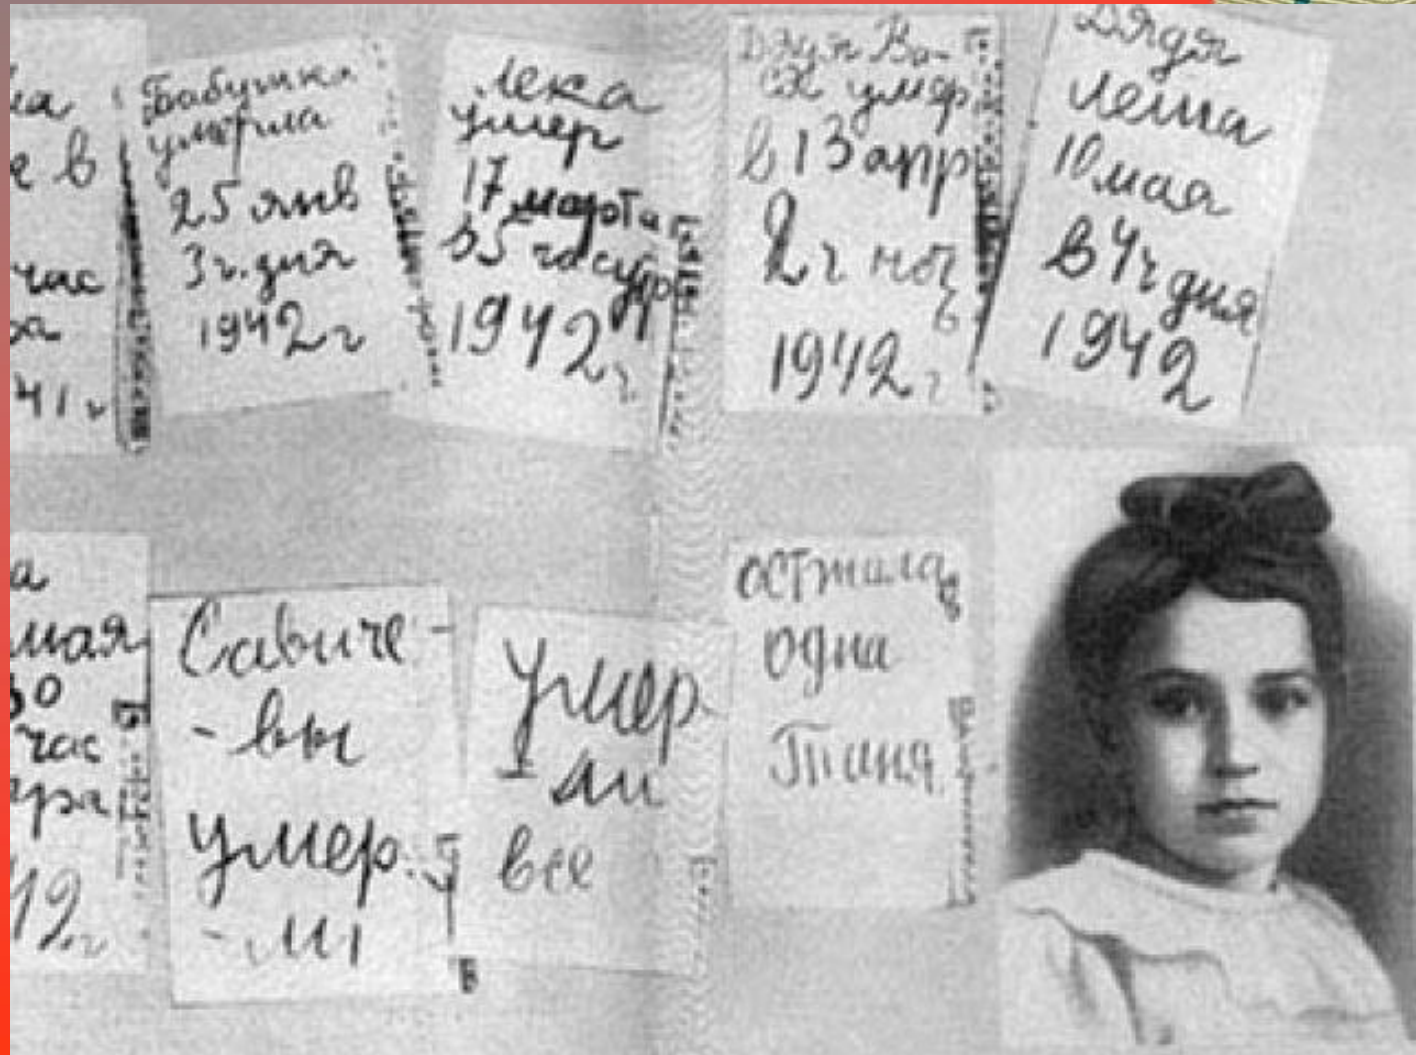 в
час
ра
41 г
Бабушка
умерла
25 янв
3 ч. дня
1942 г
Лека
умер
17 марта
в 5 час утр
1942 г
Дядя Ва-
ся умер
в 13 апр
2 ч ноч
ь
1942 г
Дядя
Леша
10 мая
в 4 ч дня
1942
а
мая
30
час
тра
42 г
Савиче-
-вы
умер-
-ли
Умер-
-ли
все
осталась
одна
Таня